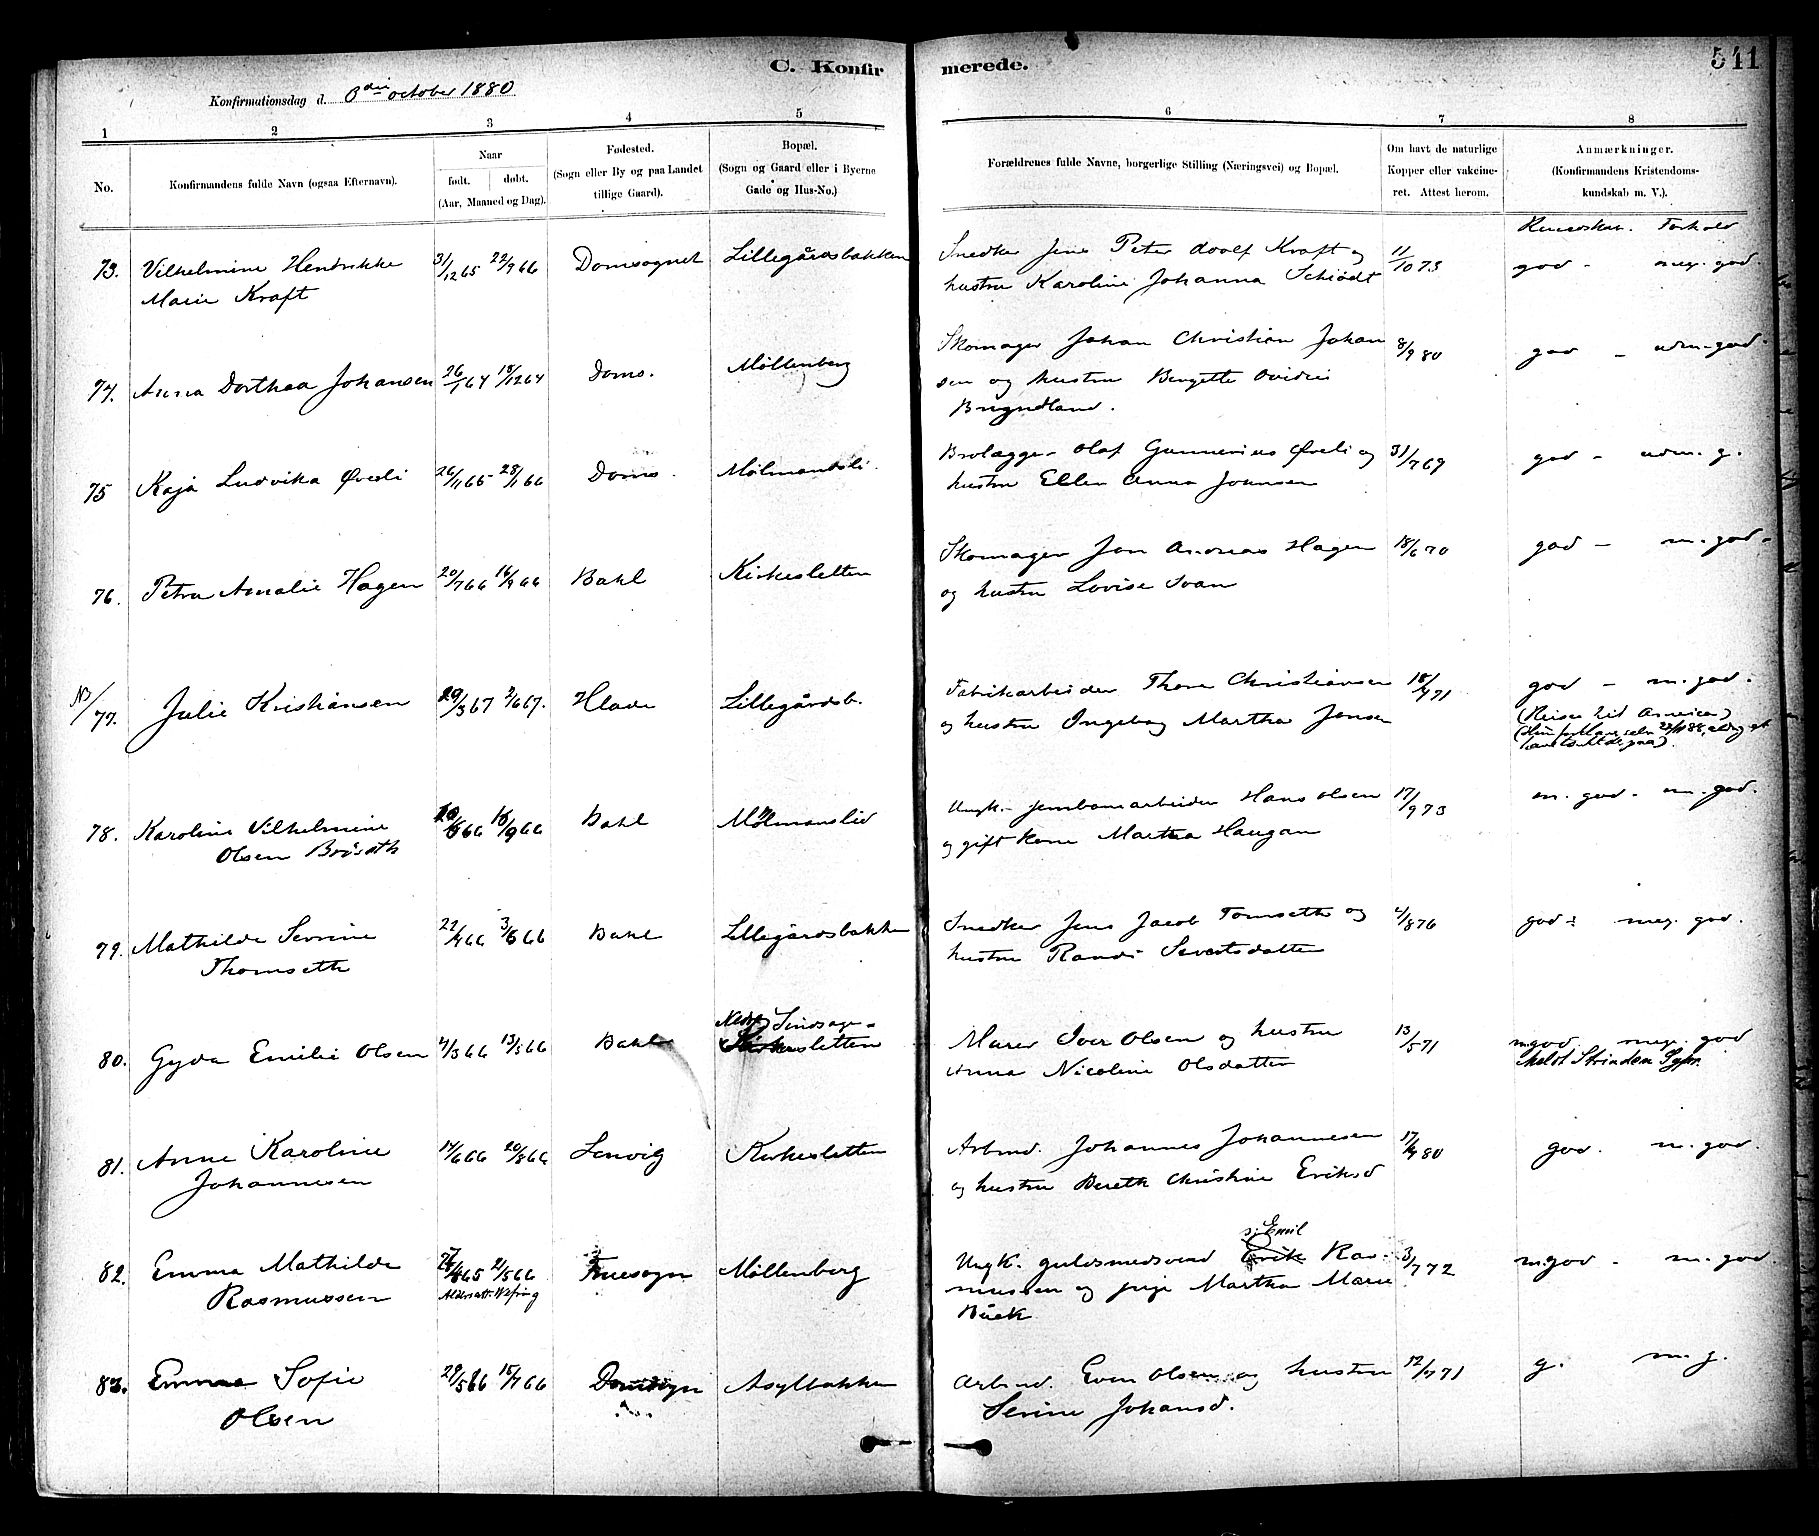 C. Konfir merede. 541
Konfirmationsdag d. october 1880
1 2 3 4 5 6 7 8
No.
Konfirmandens fulde Navn (ogsaa Efternavn).
Naar
født. døbt.
(Aar, Maaned og Dag).
Fødested.
(Sogn eller By og paa Landet
tillige Gaard).
Bopæl.
(Sogn og Gaard eller i Byerne
Gade og Hus-No.)
Forældrenes fulde Navne, borgerlige Stilling (Næringsvei) og Bopæl.
Om havt de naturlige
Kopper eller vakcine-
ret. Attest herom.
Anmærkninger.
(Konfirmandens Kristendoms-
kundskab m. V.).
Kundskab. Forhold
73. Vilhelmine Hendrikke 31/12 65 22/9 66 Domsognet Lillegårdsbakken Snedker Jens Peter Adolf Kraft og 11/10 73 god - meg. god
Marie Kraft hustru Karoline Johanna Schiödt
74. Anna Dorthea Johansen 26/1 64 18/12 64 Doms. Möllenberg Skomager Johan Christian Johan 8/9 80 god - udm. god.
sen og hustru Bergette Ovidie
75 Kaja Ludvika Øveli 26/11 65 28/1 66 Doms. Mølmandsli. Brolægger Olaf Gunnerius Øveli og 31/7 69 god - udm. g.
hustru Ellen Anna Johnsen
76. Petra Amalie Hagen 20/7 66 16/9 66 Bakl Kirkesletten Skomager Jon Andreas Hagen 18/6 70 god - m. god -
og hustru Lovise Svan
NB/77. Julie Kristiansen 29/3 67 2/6 67. Hlade Lillegårdsb. Fabrikarbeider Thore Christiansen 18/9 71 god - m. god.
og hustru Ingeborg Martha Jensen (Reiser til America)
78. Karoline Vilhelmine 66 16/9 66 Bakl Mølmanslid Ungk. Jernbanearbeider Hans Olsen 17/9 73 m. god - m. god.
Olsen og gift Kone Martha Haugan
79. Mathilde Serine 22/4 66 3/6 66 Bakl Lillegårdsbakken Snedker Jens Jacob Tomseth og 4/8 76 god - meg. god.
Thomseth hustru Randi Severtsdatter
80. Gyda Emilie Olsen 4/3 66 13/5 66 Bakl Kirkesletten Murer Iver Olsen og hustru 13/5 71 m. god meg. god
Anna Nicoline Olsdatter
81. Anne Karoline 14/6 66 20/8 66 Lenvig Kirkesletten Arbmd. Johannes Johannesen 17/9 80 god. m. god.
Johannesen og hustru Bereth Christine Eriksd
Emil
82. Emma Mathilde 65 21/5 66 Fruesogn Möllenberg Ungk. guldsmedsvend Erik Ras- 3/7 72 m. god - m. god
Rasmussen mussen og pige Martha Marie
Bäck
83. Emma Sofie 29/5 66 15/7 66 Domsogn Asylbakken Arbmd. Even Olsen og hustru 12/7 71 g. m. g.
Olsen Serine Johansd.